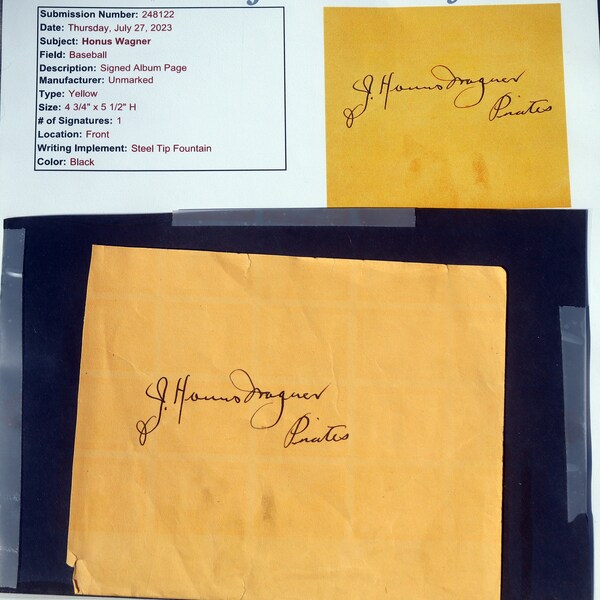 Submission Number: 248122
Date: Thursday, July 27, 2023
Subject: Honus Wagner
Field: Baseball
Description: Signed Album Page
Manufacturer: Unmarked
Type: Yellow
Size: 4 3/4" x 5 1/2" H
# of Signatures: 1
Location: Front
Writing Implement: Steel Tip Fountain
Color: Black
J. Honus Wagner
Pirates
J. Honus Wagner
Pirates